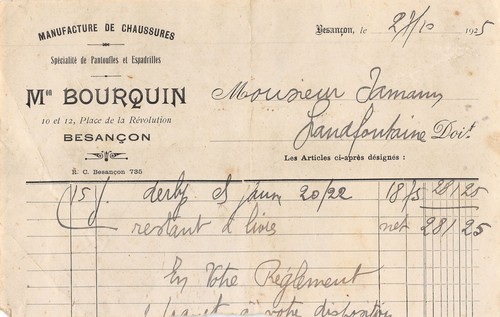 MANUFACTURE DE CHAUSSURES
Spécialité de Pantoufles et Espadrilles
Mon BOURQUIN
10 et 12, Place de la Révolution
BESANÇON
R. C. Besançon 735
Besançon, le 27/10 1925
Monsieur Jamann
Grandfontaine Doit
Les Articles ci-après désignés :
15 derby jaune 20/22 18 75 281 25
restant d livrés net 281 25
En Votre Règlement
à votre disposition